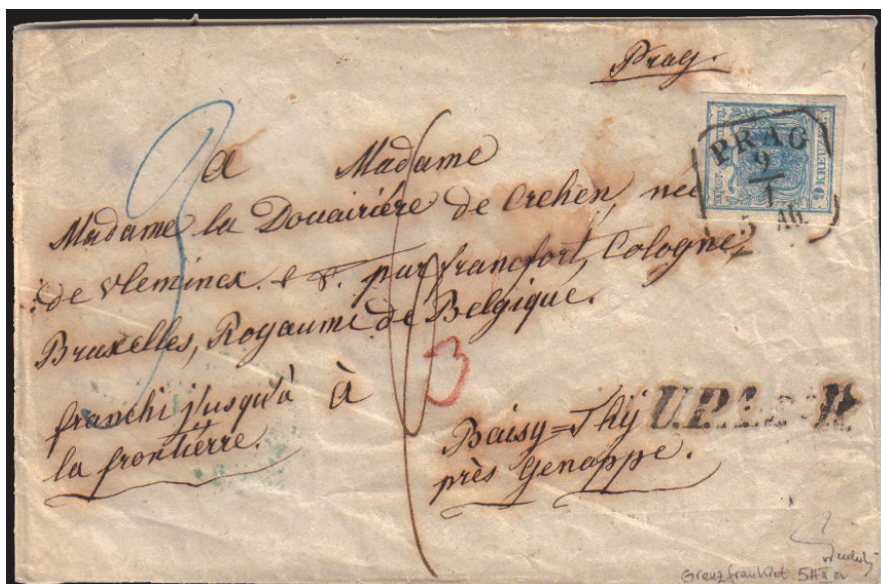 Prag.
PRAG
9
1
5 Ab.
9 KREUZER
a Madame
Madame la Douairière de Crehen, nee
de Vleminex. par francfort, Cologne,
Bruxelles, Royaume de Belgique.
franchi j'usqu'à
la frontièrre.
à
3
3
Baisy=Thÿ
près Genappe.
Grenzfrankiert 5H